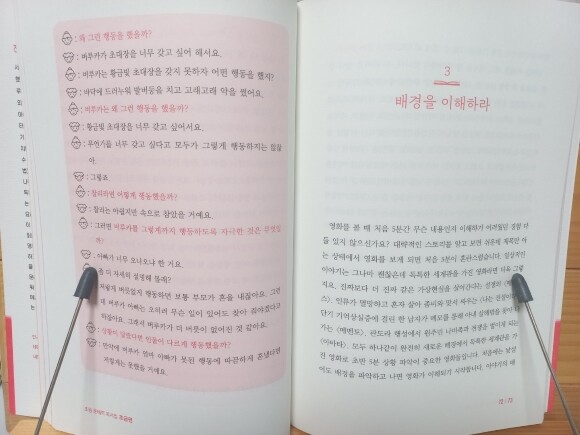 : 왜 그런 행동을 했을까?
: 버루카가 초대장을 너무 갖고 싶어 해서요.
: 버루카는 황금빛 초대장을 갖지 못하자 어떤 행동을 했지?
: 바닥에 드러누워 발버둥을 치고 고래고래 악을 썼어요.
: 버루카는 왜 그런 행동을 했을까?
: 황금빛 초대장을 너무 갖고 싶어서요.
: 무언가를 너무 갖고 싶다고 모두가 그렇게 행동하지는 않잖
아.
: 그렇죠.
: 찰리라면 어떻게 행동했을까?
: 찰리는 아쉽지만 속으로 참았을 거예요.
: 그러면 버루카를 그렇게까지 행동하도록 자극한 것은 무엇일
까?
: 아빠가 너무 오냐오냐 한 거요.
좀 더 자세히 설명해 볼래?
이렇게 버릇없게 행동하면 보통 부모가 혼을 내잖아요. 그런
데 버루카 아빠는 오히려 무슨 일이 있어도 찾아 줘야겠다고
하잖아요. 그래서 버루카가 더 버릇이 없어진 것 같아요.
: 상황이 달랐다면 인물이 다르게 행동했을까?
: 만약에 버루카가 엄마 아빠가 못된 행동에 따끔하게 혼냈다면
저렇게는 못했을 거예요.
3
배경을 이해하라
영화를 볼 때 처음 5분간 무슨 내용인지 이해하기 어려웠던 경험 다
들 있지 않으신가요? 대략적인 스토리를 알고 보면 쉬운데 제목만 아
는 상태에서 영화를 보게 되면 처음 5분이 혼란스럽습니다. 일상적인
이야기는 그나마 괜찮은데 독특한 세계관을 가진 영화라면 더욱 그렇
지요. 진짜보다 더 진짜 같은 가상현실을 살아간다는 설정의 〈매
스〉, 인류가 멸망하고 혼자 살아 좀비와 맞서 싸우는 〈나는 전설이다〉,
단기 기억상실증에 걸린 한 남자가 메모를 통해 아내 살해범을 찾아
가는 〈메멘토〉, 판도라 행성에서 원주민 나비족과 전쟁을 벌이게 되는
〈아바타〉. 모두 하나같이 완전히 새로운 배경에서 독특한 세계관을 가
진 영화로 초반 5분 상황 파악이 중요한 영화들입니다. 처음에는 낯설
어도 배경을 파악하고 나면 영화가 이해되기 시작합니다. 이야기의 배
72 | 73